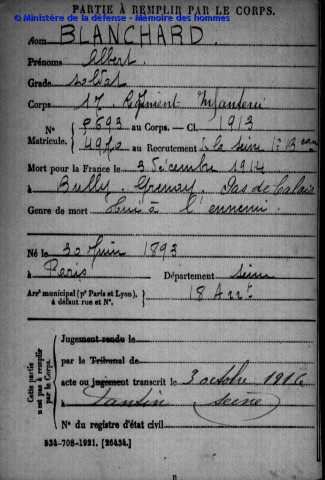 © Ministère de la défense - Mémoire des hommes
PARTIE À REMPLIR PAR LE CORPS.
Nom BLANCHARD.
Prénoms Albert.
Grade soldat
Corps 17 Régiment Infanterie
N° 9693 au Corps. — Cl. 1913
Matricule. 4970 au Recrutement de la Seine 1er B
Mort pour la France le 3 décembre 1914
à Bully-Grenay. Pas de Calais
Genre de mort Tué à l'ennemi.
Né le 30 Juin 1893
à Paris Département Seine
Arrt municipal (pr Paris et Lyon), à défaut rue et N°. 18 Arrt
Cette partie n'est pas à remplir par le Corps.
Jugement rendu le
par le Tribunal de
acte ou jugement transcrit le 3 octobre 1916
à Pantin Seine
N° du registre d'état civil
534-708-1921. [26434.]